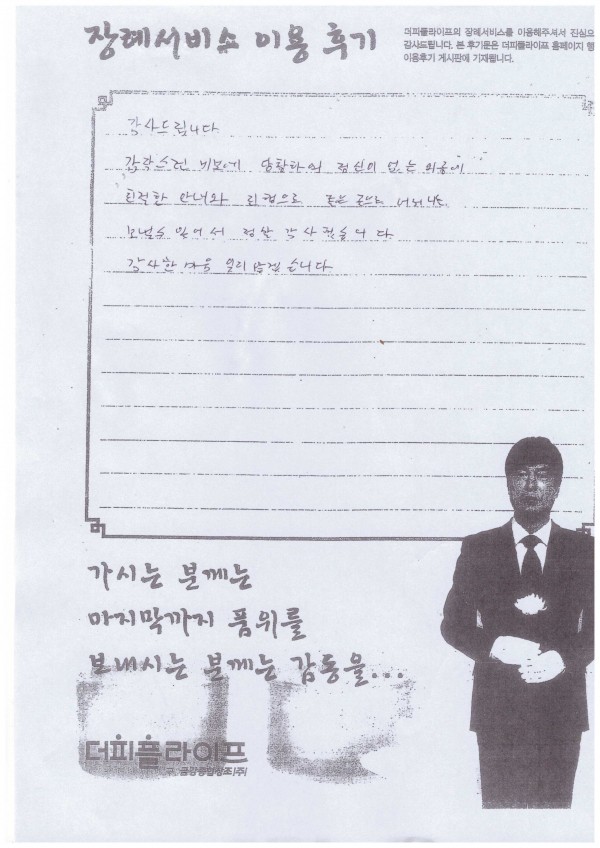 장례서비스 이용 후기
더피플라이프의 장례서비스를 이용해주셔서 진심으
감사드립니다. 본 후기문은 더피플라이프 홈페이지 행
이용후기 게시판에 기재됩니다.
감사드립니다
갑작스런 비보에 당황하여 정신이 없는 와중에
친절한 안내와 진행으로 좋은 곳으로
보낼수 있어서 정말 감사했습니다
감사한 마음 잊지 않겠습니다
가시는 분께는
마지막까지 품위를
보내시는 분께는 감동을...
더피플라이프
구. 금강종합상조(주)